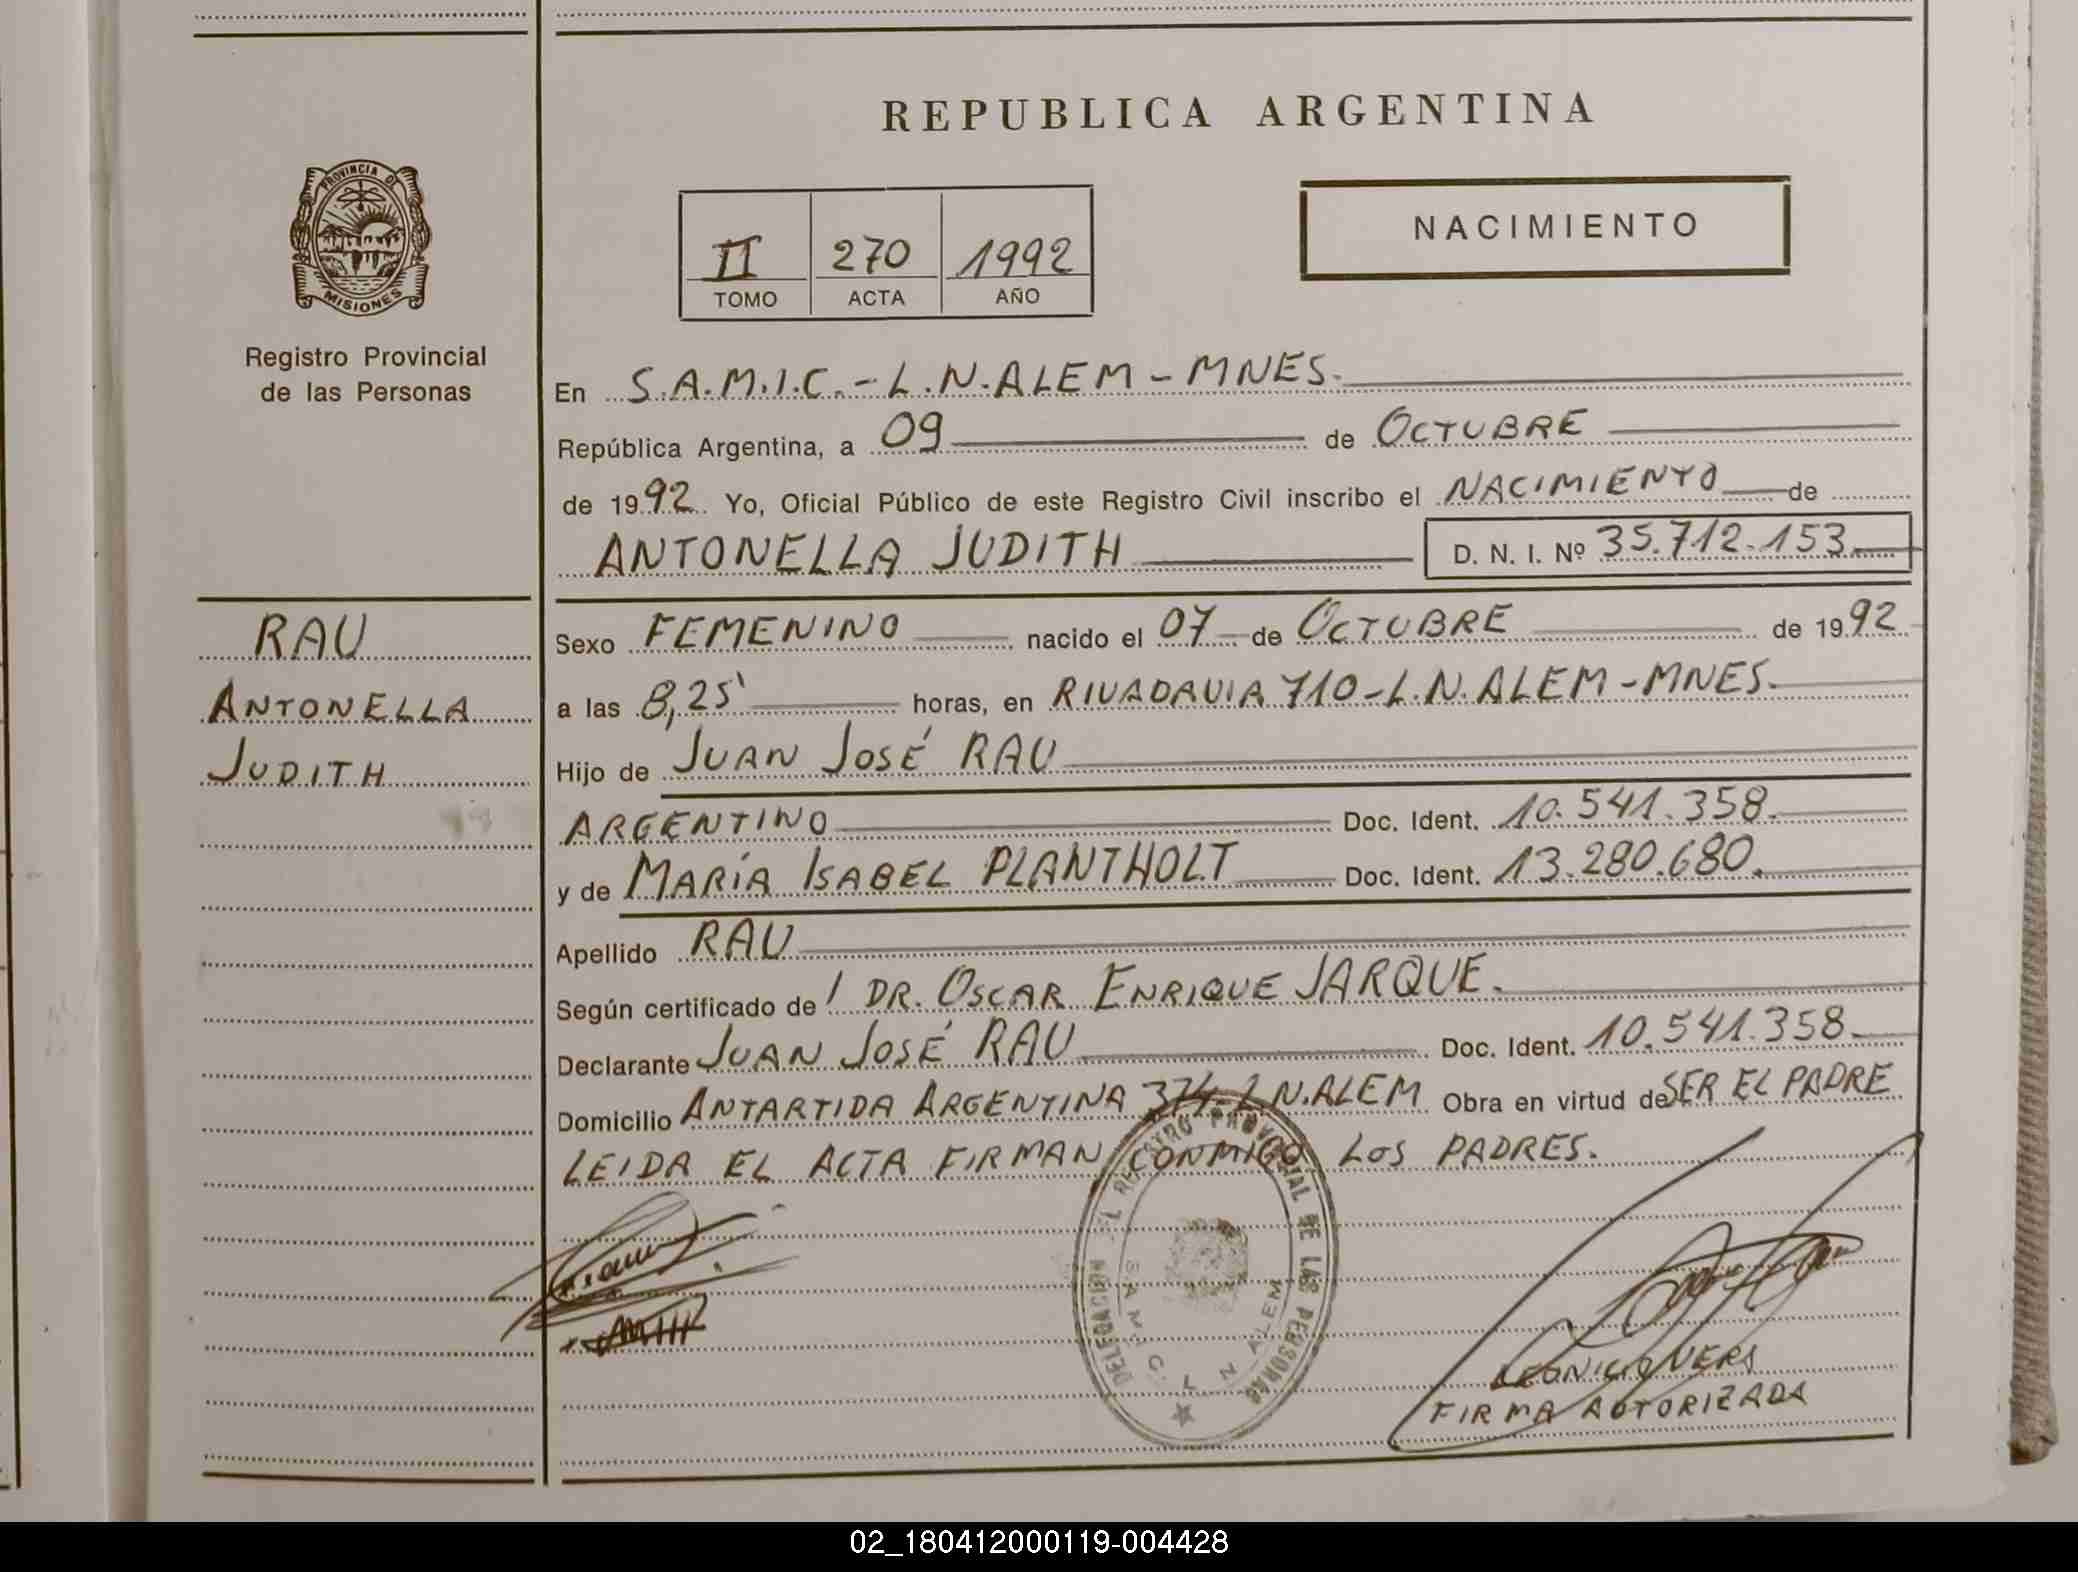 REPUBLICA ARGENTINA
PROVINCIA DE
MISIONES
Registro Provincial
de las Personas
II 270 1992
TOMO ACTA AÑO
NACIMIENTO
En S.A.M.I.C.-L.N.ALEM-MNES.
República Argentina, a 09 de OCTUBRE
de 1992. Yo, Oficial Público de este Registro Civil inscribo el NACIMIENTO de
ANTONELLA JUDITH D. N. I. Nº 35.712.153
RAU
ANTONELLA
JUDITH
Sexo FEMENINO nacido el 07 de OCTUBRE de 1992
a las 8,25' horas, en RIVADAVIA 710-L.N.ALEM-MNES.
Hijo de JUAN JOSÉ RAU
ARGENTINO Doc. Ident. 10.541.358.
y de MARÍA ISABEL PLANTHOLT Doc. Ident. 13.280.680.
Apellido RAU
Según certificado de / DR. OSCAR ENRIQUE JARQUE.
Declarante JUAN JOSÉ RAU Doc. Ident. 10.541.358
Domicilio ANTARTIDA ARGENTINA 374-L.N.ALEM Obra en virtud de SER EL PADRE
LEIDA EL ACTA FIRMAN CONMIGO LOS PADRES.
DELEGACION DEL REGISTRO PROVINCIAL DE LAS PERSONAS
S A M I C. L. N. ALEM
FIRMA AUTORIZADA
02_180412000119-004428